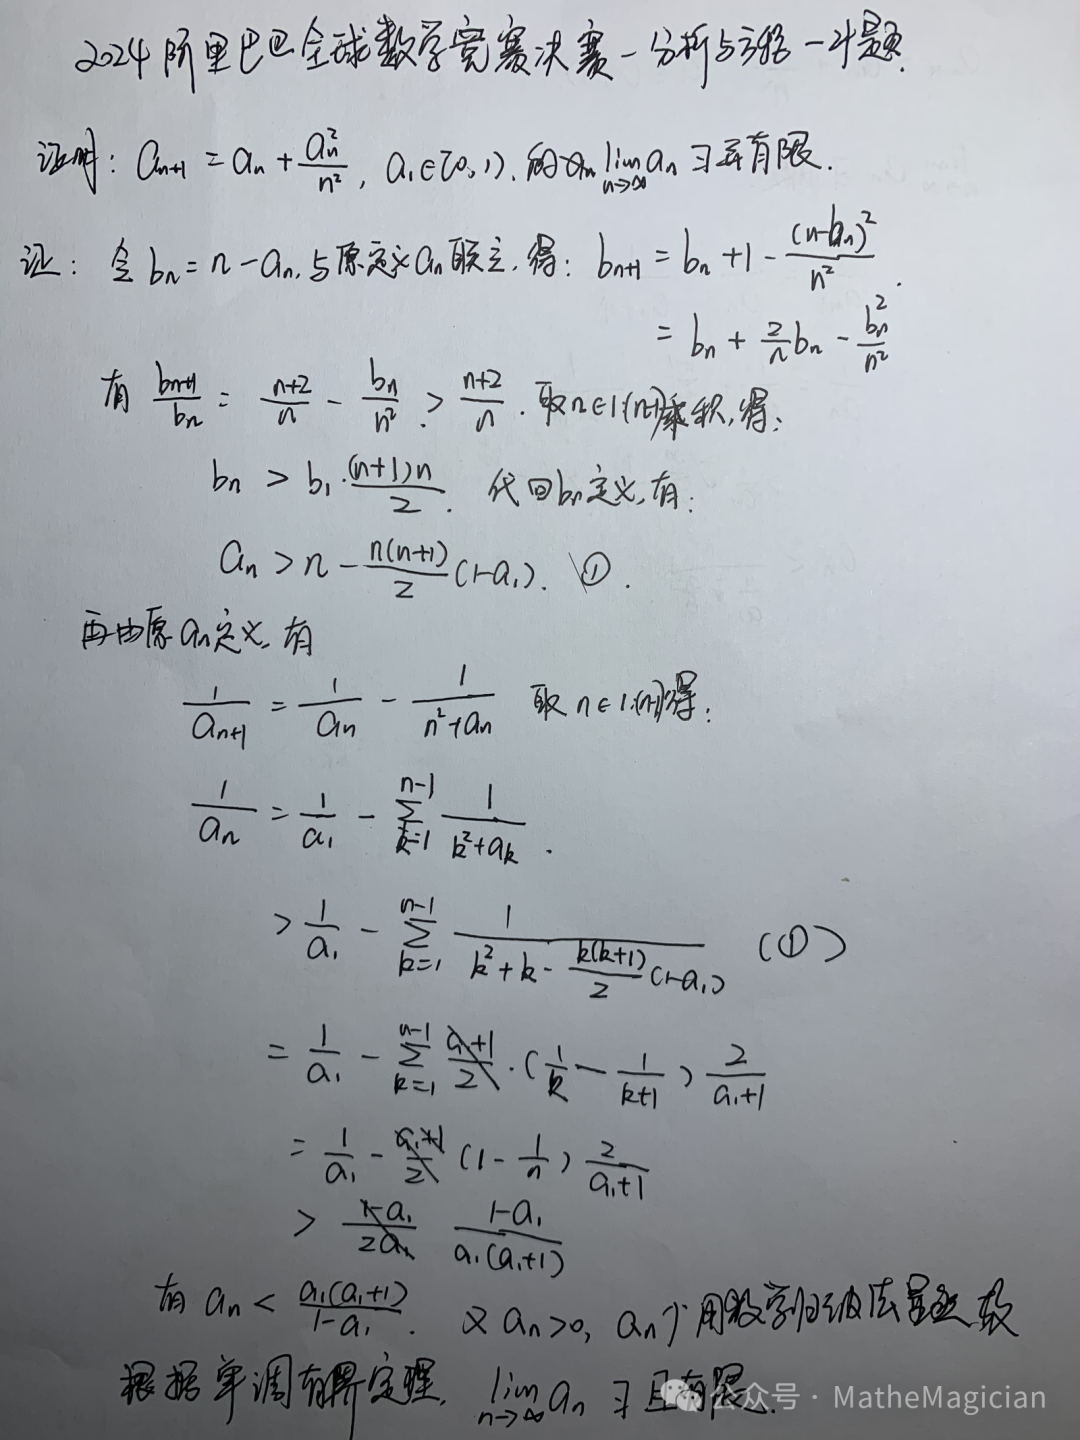 2024阿里巴巴全球数学竞赛决赛-分析与方程-计题.
证明: a_{n+1} = a_n + \frac{a_n^2}{n^2}, a_1∈(0,1). 的 \lim_{n→∞} a_n ∃且有限.
证: 令 b_n = n - a_n, 与原定义a_n联立, 得: b_{n+1} = b_n + 1 - \frac{(n-b_n)^2}{n^2}.
= b_n + \frac{2}{n} b_n - \frac{b_n^2}{n^2}
有 \frac{b_{n+1}}{b_n} = \frac{n+2}{n} - \frac{b_n}{n^2} > \frac{n+2}{n}. 取n∈1:(n-1)乘积, 得:
b_n > b_1·\frac{(n+1)n}{2}. 代回b_n定义, 有:
a_n > n - \frac{n(n+1)}{2}(1-a_1). ①.
再由原a_n定义, 有
\frac{1}{a_{n+1}} = \frac{1}{a_n} - \frac{1}{n^2+a_n} 取n∈1:(n-1)得:
\frac{1}{a_n} = \frac{1}{a_1} - \sum_{k=1}^{n-1} \frac{1}{k^2+a_k}.
> \frac{1}{a_1} - \sum_{k=1}^{n-1} \frac{1}{k^2+k-\frac{k(k+1)}{2}(1-a_1)} (①)
= \frac{1}{a_1} - \sum_{k=1}^{n-1} \frac{a_1+1}{2}·(\frac{1}{k} - \frac{1}{k+1}) \frac{2}{a_1+1}
= \frac{1}{a_1} - \frac{a_1+1}{2} (1-\frac{1}{n}) \frac{2}{a_1+1}
> \frac{1-a_1}{2a_1} \frac{1-a_1}{a_1(a_1+1)}
有 a_n < \frac{a_1(a_1+1)}{1-a_1}. 又 a_n>0, a_n 用数学归纳法
根据单调有界定理, \lim_{n→∞} a_n ∃且有限.
公众号 · MatheMagician